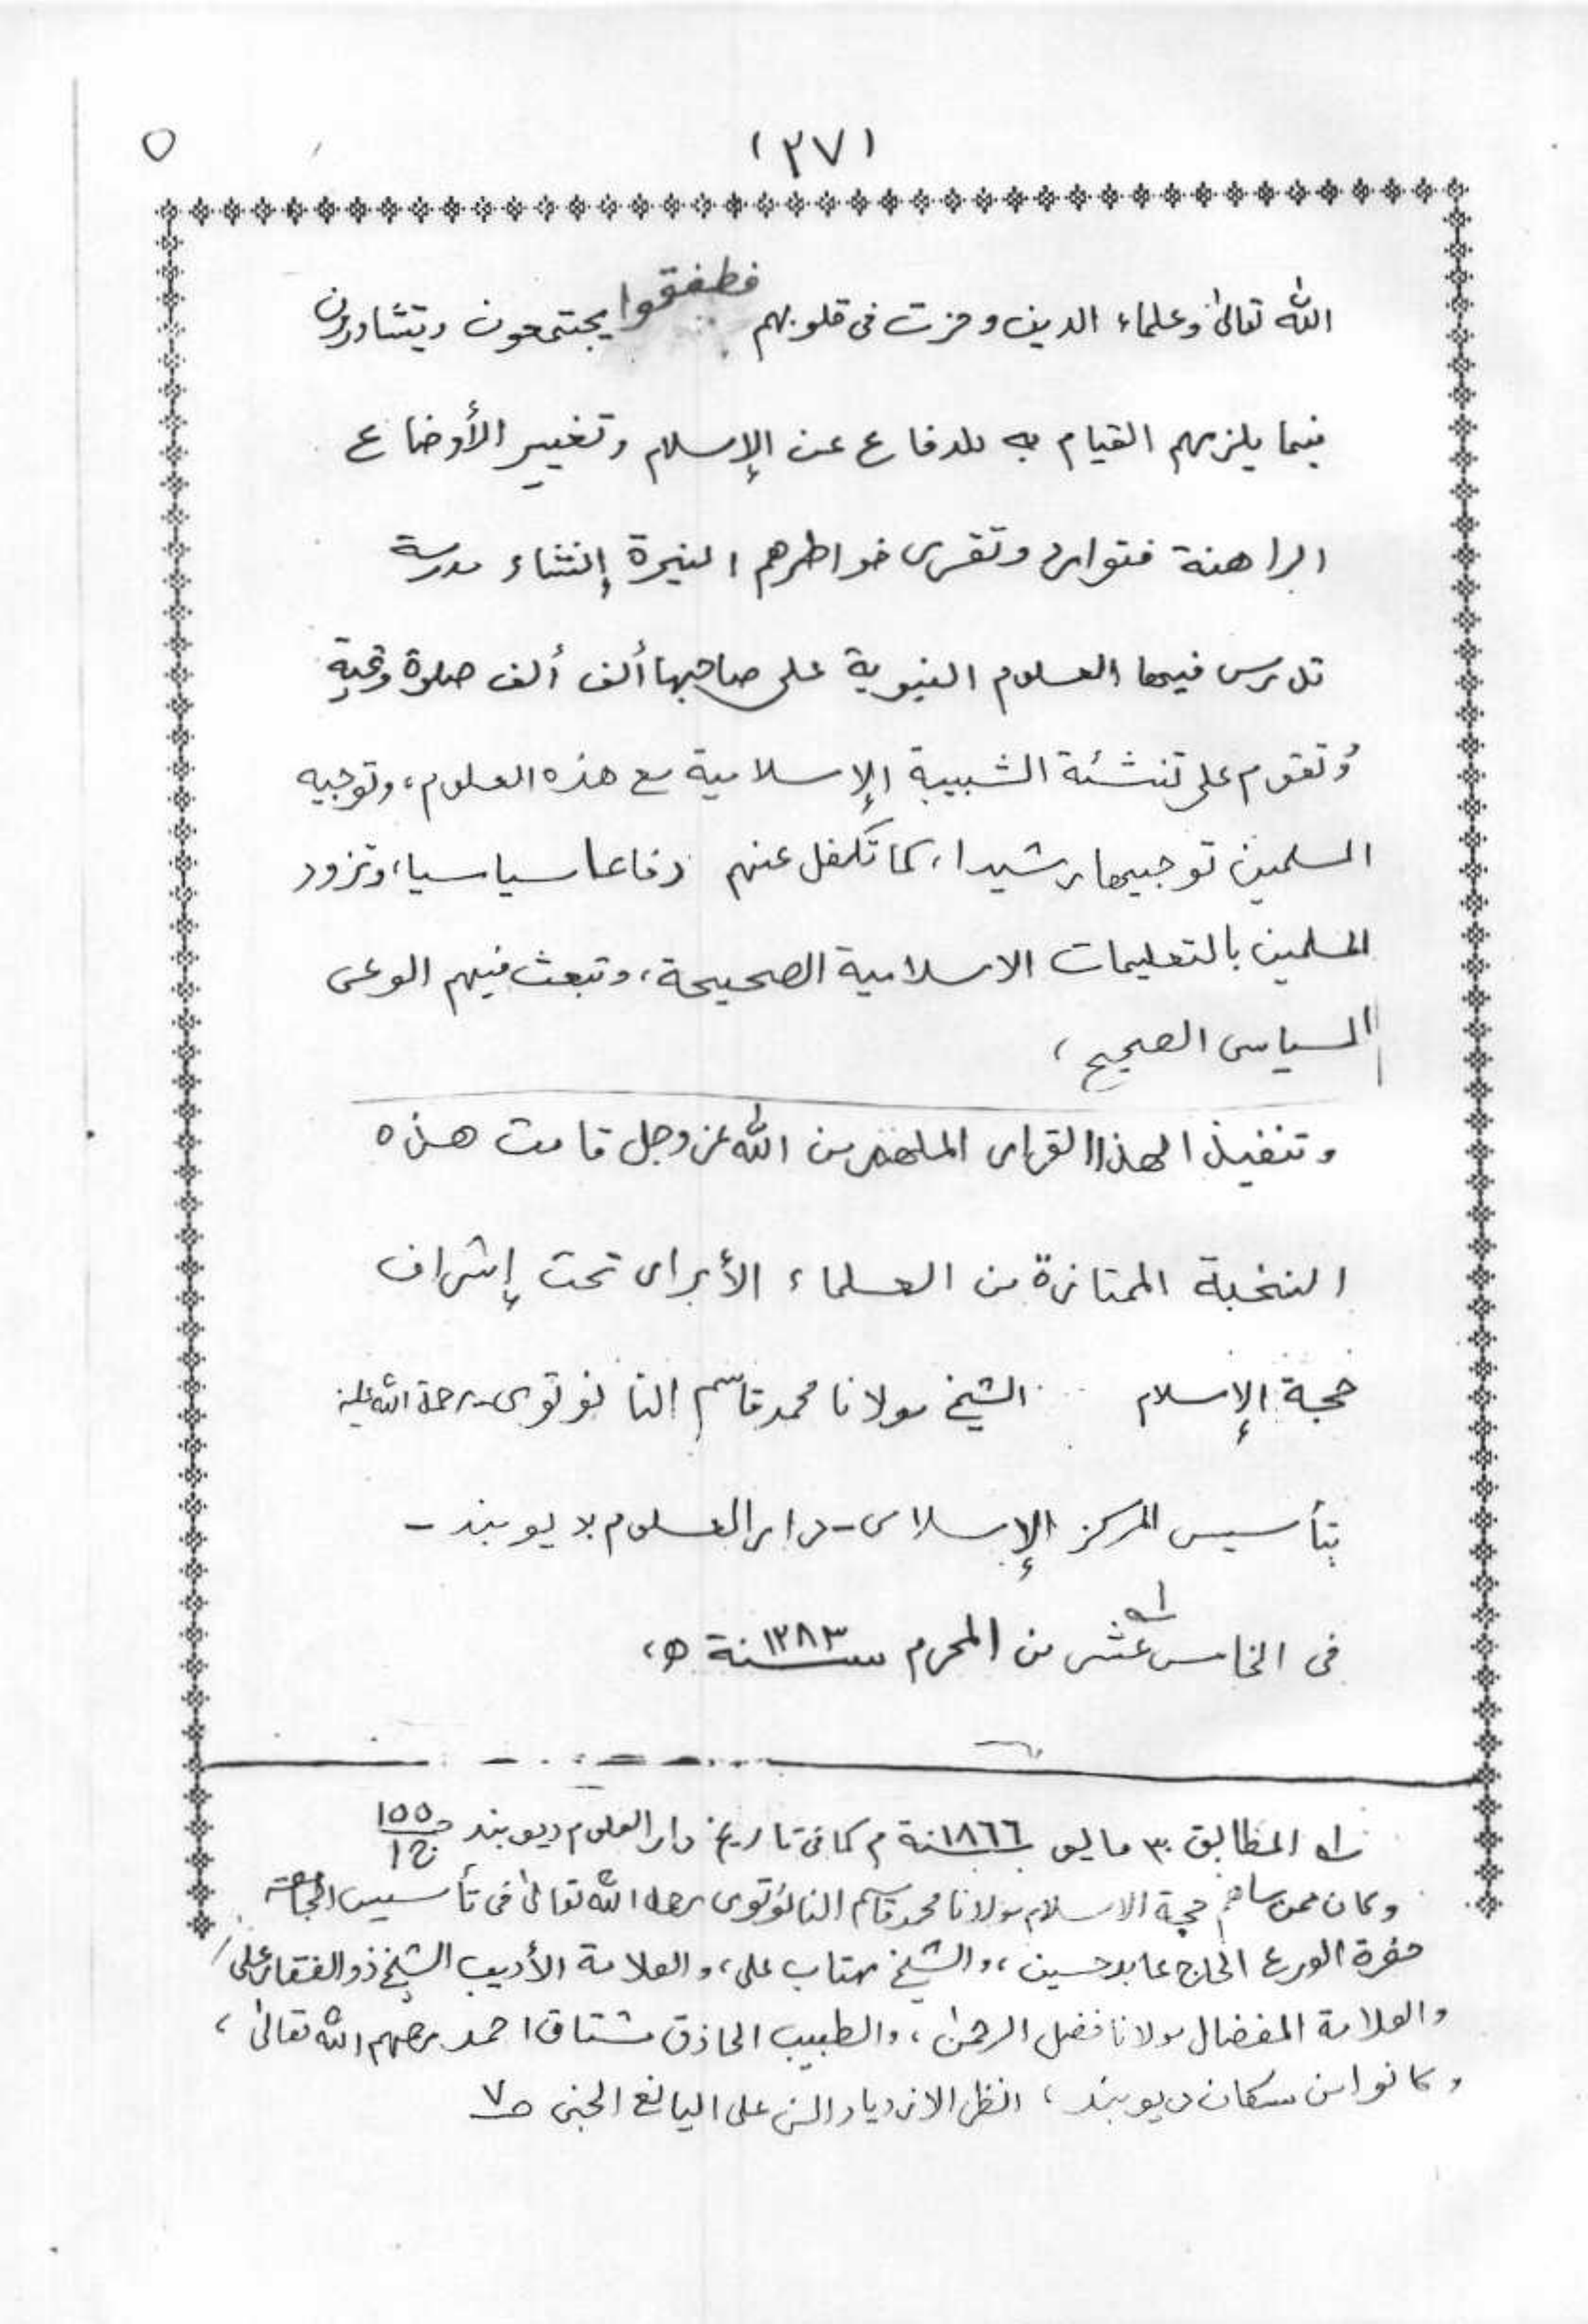 (٢٧)
٥
الله تعالى وعلماء الدين وحزت فى قلوبهم فطفقوا يجتمعون ويتشاورون
فيما يلزمهم القيام به للدفاع عن الإسلام وتغيير الأوضاع
الراهنة فتوارد وتقرر خواطرهم النيرة إنشاء مدرسة
تدرس فيها العلوم النبوية على صاحبها ألف ألف صلوة وتحية
وتقوم على تنشئة الشبيبة الإسلامية مع هذه العلوم، وتوجيه
المسلمين توجيها رشيدا، كما تكفل عنهم دفاعا سياسيا، وتزود
المسلمين بالتعليمات الاسلامية الصحيحة، وتبعث فيهم الوعى
السياسى الصحيح،
وتنفيذا لهذا القرار الملهم من الله عز وجل قامت هذه
النخبة الممتازة من العلماء الأبرار تحت إشراف
حجة الإسلام الشيخ مولانا محمد قاسم النانوتوى رحمة الله عليه
بتأسيس المركز الإسلامى - دار العلوم بديوبند -
فى الخامس عشر من المحرم سنة ١٢٨٣ ه،
له المطابق ٣٠ مايو سنة ١٨٦٦ م كما فى تاريخ دار العلوم ديوبند ص ١٥٥ ج ١
وكان ممن ساهم حجة الاسلام مولانا محمد قاسم النانوتوى رحمه الله تعالى فى تأسيس الجامعة
حضرة الورع الحاج عابد حسين، والشيخ مهتاب على، والعلامة الأديب الشيخ ذو الفقار على،
والعلامة المفضال مولانا فضل الرحمن، والطبيب الحاذق مشتاق احمد رحمهم الله تعالى،
وكانوا من سكان ديوبند، انظر الازدياد السنى على اليانع الجنى ص ٧